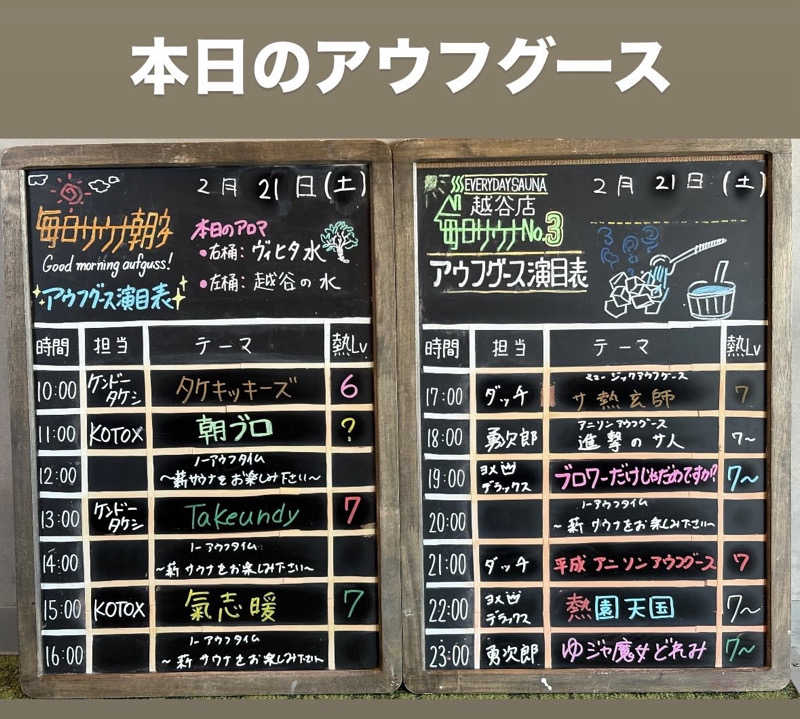 本日のアウフグース
2月 21日(土)
毎日サウナ朝活
Good morning aufguss!
アウフグース演目表
本日のアロマ
・右桶: ヴィヒタ水
・左桶: 越谷の水
時間 担当 テーマ 熱Lv
10:00 ケンドータケシ タケキッキーズ 6
11:00 KOTOX 朝ブロ ?
12:00 ノーアウフタイム
～薪サウナをお楽しみ下さい～
13:00 ケンドータケシ Takeundy 7
14:00 ノーアウフタイム
～薪サウナをお楽しみ下さい～
15:00 KOTOX 氣志暖 7
16:00 ノーアウフタイム
～薪サウナをお楽しみ下さい～
EVERYDAY SAUNA
越谷店
毎日サウナNo.3
アウフグース演目表
2月 21日(土)
時間 担当 テーマ 熱Lv
17:00 ダッチ ミュージックアウフグース
サ熱玄師 7
18:00 勇次郎 アニソンアウフグース
進撃のサ人 7～
19:00 ヨメデラックス ブロワーだけじゃだめですか!? 7～
20:00 ノーアウフタイム
～薪サウナをお楽しみ下さい～
21:00 ダッチ 平成アニソンアウフグース 7
22:00 ヨメデラックス 熱園天国 7～
23:00 勇次郎 ゆジャ魔女どれみ 7～